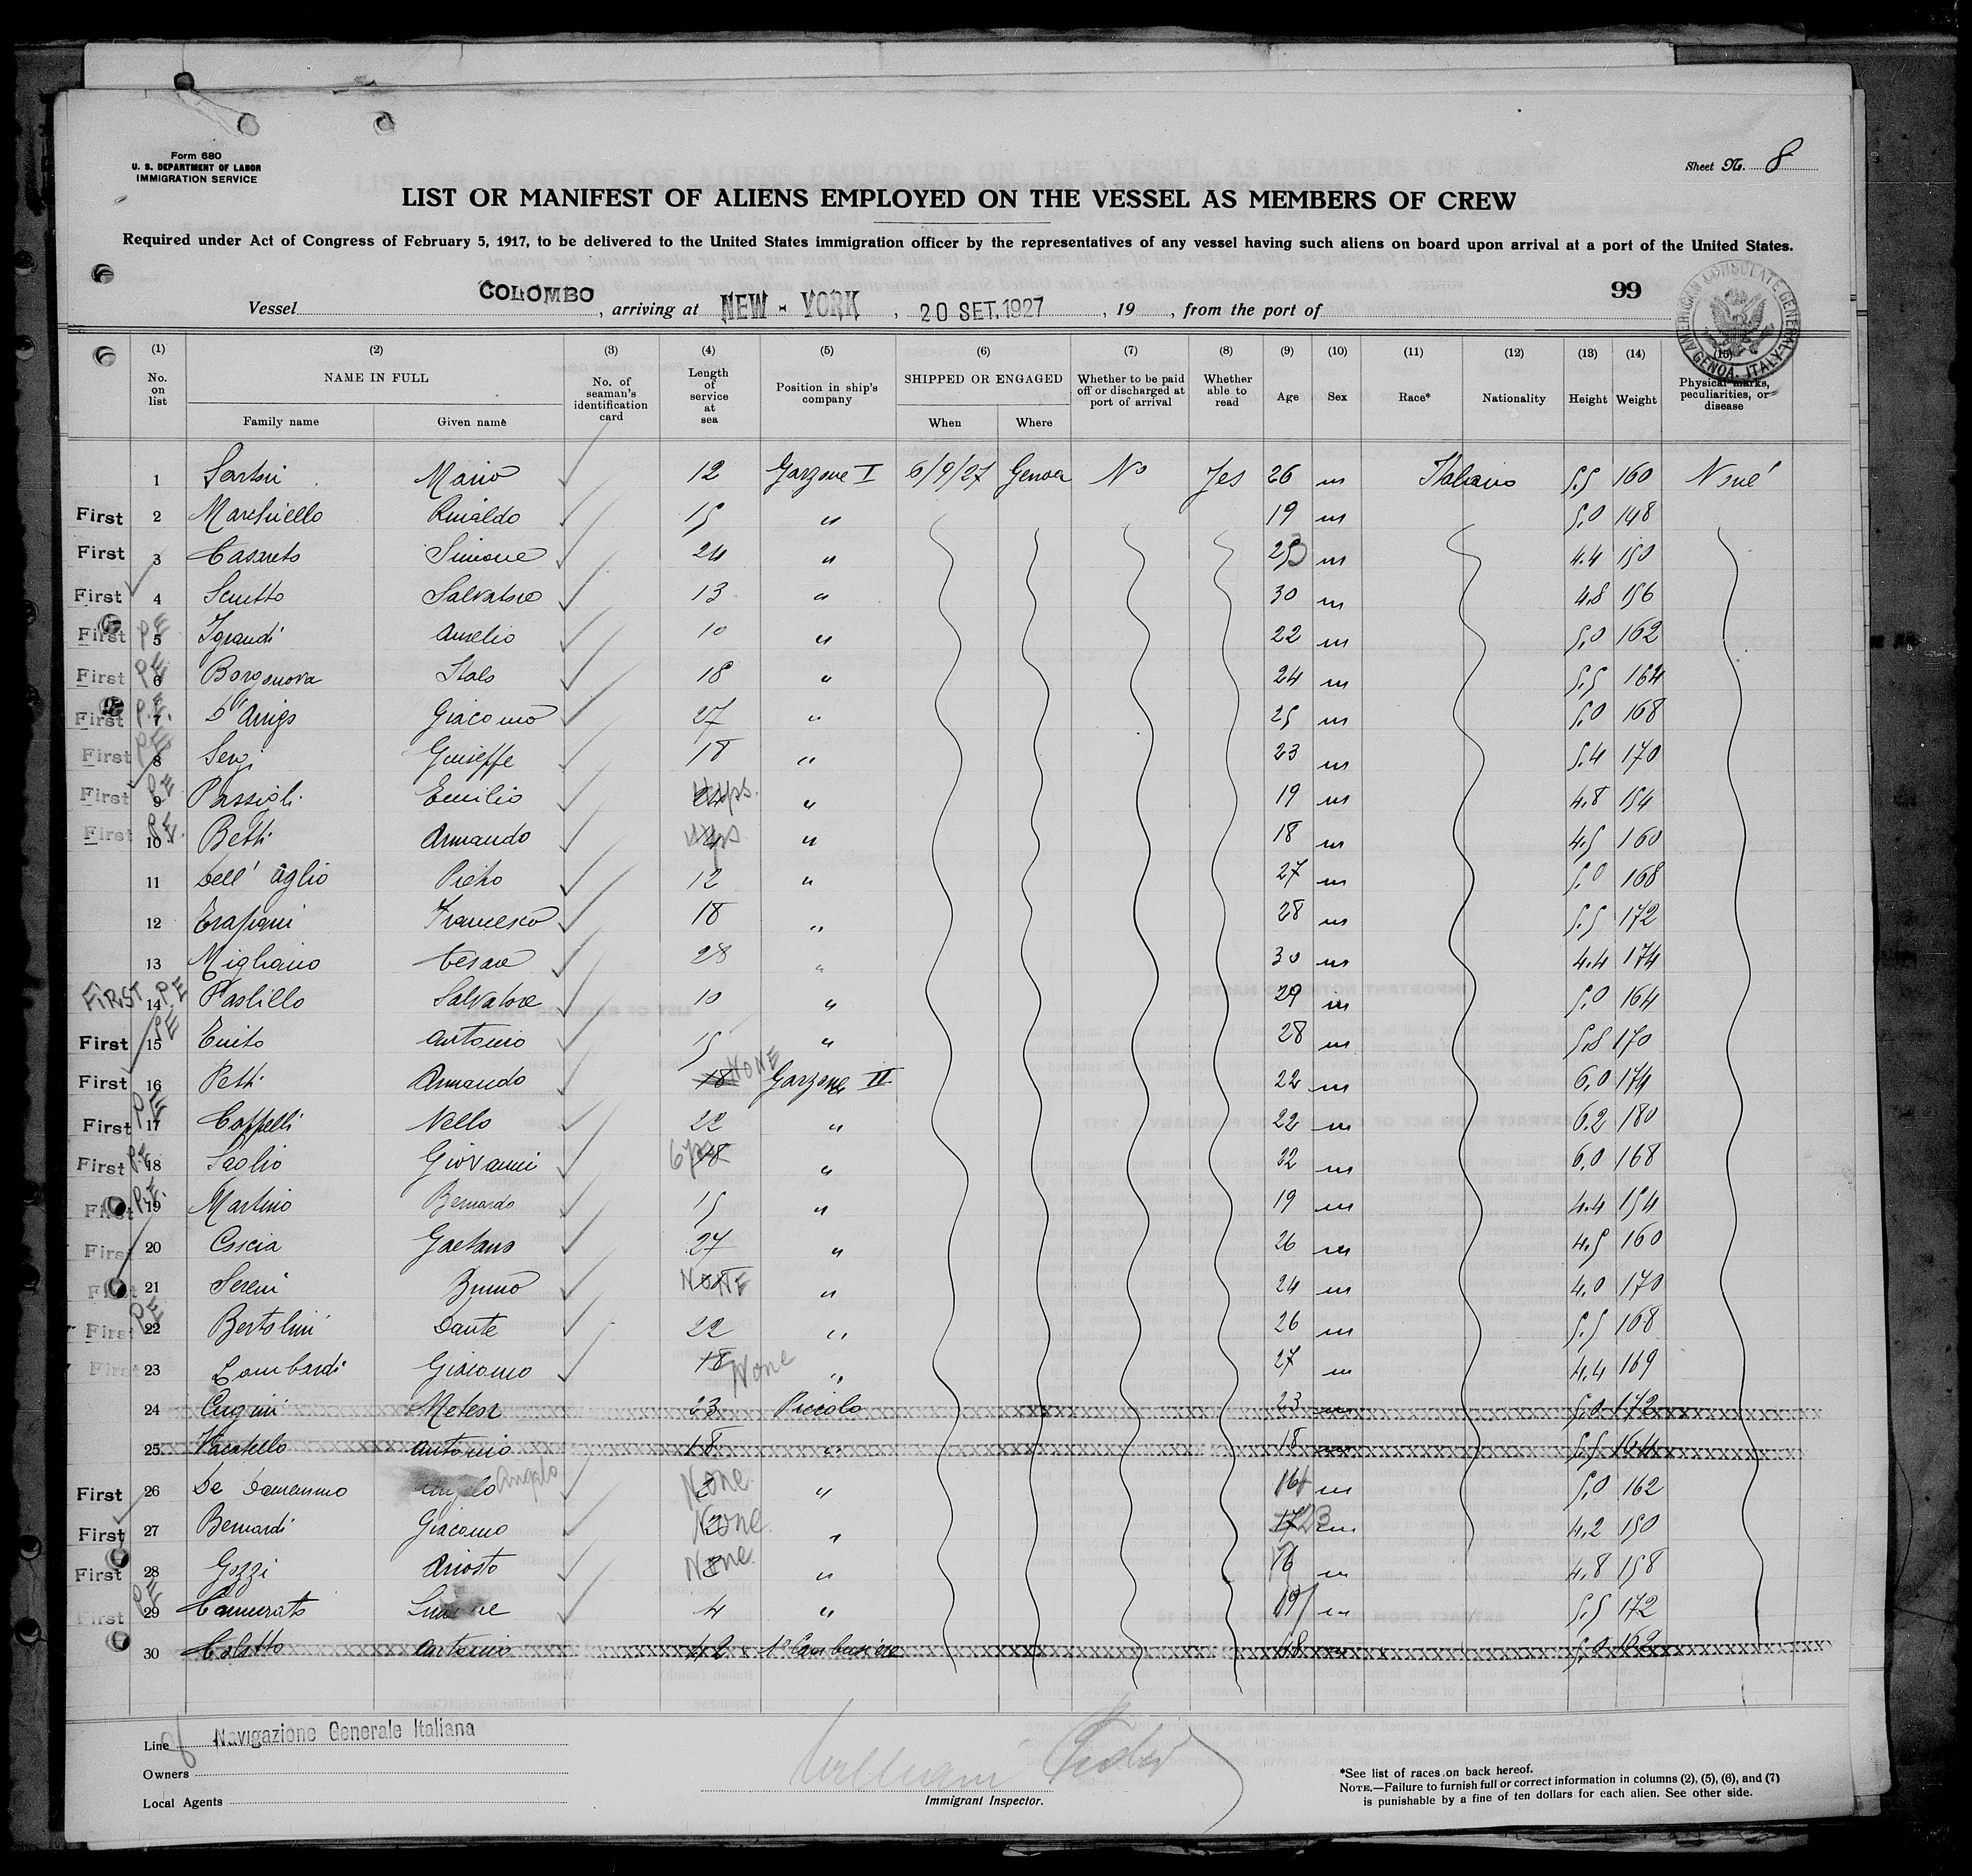 Form 680
U. S. DEPARTMENT OF LABOR
IMMIGRATION SERVICE
Sheet No. 8
LIST OR MANIFEST OF ALIENS EMPLOYED ON THE VESSEL AS MEMBERS OF CREW
Required under Act of Congress of February 5, 1917, to be delivered to the United States immigration officer by the representatives of any vessel having such aliens on board upon arrival at a port of the United States.
99
AMERICAN CONSULATE GENERAL GENOA, ITALY
Vessel COLOMBO, arriving at NEW-YORK, 20 SET. 1927, 19 , from the port of
(1) (2) (3) (4) (5) (6) (7) (8) (9) (10) (11) (12) (13) (14) (15)
No. on list NAME IN FULL Family name Given name No. of seaman's identification card Length of service at sea Position in ship's company SHIPPED OR ENGAGED When Where Whether to be paid off or discharged at port of arrival Whether able to read Age Sex Race* Nationality Height Weight Physical marks, peculiarities, or disease
1 Mario 12 Garzone I 6/9/27 Genoa No Yes 26 m Italiano 5.5 160 None
First 2 Rinaldo 15 " 19 m 5.0 148
First 3 Casareto Simone 24 " m 4.4 150
First 4 Salvatore 13 " 30 m 4.8 156
First PE 5 Aurelio 10 " 22 m 5.0 162
First PE 6 Borgonova Italo 18 " 24 m 5.5 164
First P.E. 7 D'Arrigo Giacomo 27 " 25 m 5.0 168
First PE 8 Sergi Giuseppe 18 " 23 m 5.4 170
First PE 9 Passigli Emilio " 19 m 4.8 154
First PE 10 Betti Armando " 18 m 4.5 160
11 Dell' Aglio Pietro 12 " 27 m 5.0 168
12 Trapani Francesco 18 " 28 m 5.5 172
13 Migliano Cesare 28 " 30 m 4.4 174
FIRST PE 14 Salvatore 10 " 29 m 5.0 164
First PE 15 Antonio 15 " 28 m 5.8 170
First 16 Petti Armando 18 NONE Garzone II 22 m 6.0 174
First PE 17 Coppelli Nello 22 " 22 m 6.2 180
First P.E 18 Giovanni 18 " 22 m 6.0 168
First P.E. 19 Martino Bernardo 15 " 19 m 4.4 154
First 20 Coscia Gaetano 27 " 26 m 4.5 160
First 21 Sereni Bruno NONE " 24 m 4.0 170
First PE 22 Bertolini Dante 22 " 26 m 5.5 168
First 23 Lombardi Giacomo 18 None " 27 m 4.4 169
24 23 Piccolo 23 m 5.0 172
25 Antonio 18 " 18 m 5.5 164
First 26 Angelo None " m 5.0 162
First 27 Bernardi Giacomo None " 17 23 m 4.2 150
First 28 Gozzi Ariosto None " 16 m 4.8 158
First PE 29 4 " 19 m 5.5 172
30 Antonio 42 48 m 5.0 162
Line Navigazione Generale Italiana
Owners
Local Agents
William
Immigrant Inspector.
*See list of races on back hereof.
NOTE.—Failure to furnish full or correct information in columns (2), (5), (6), and (7)
is punishable by a fine of ten dollars for each alien. See other side.